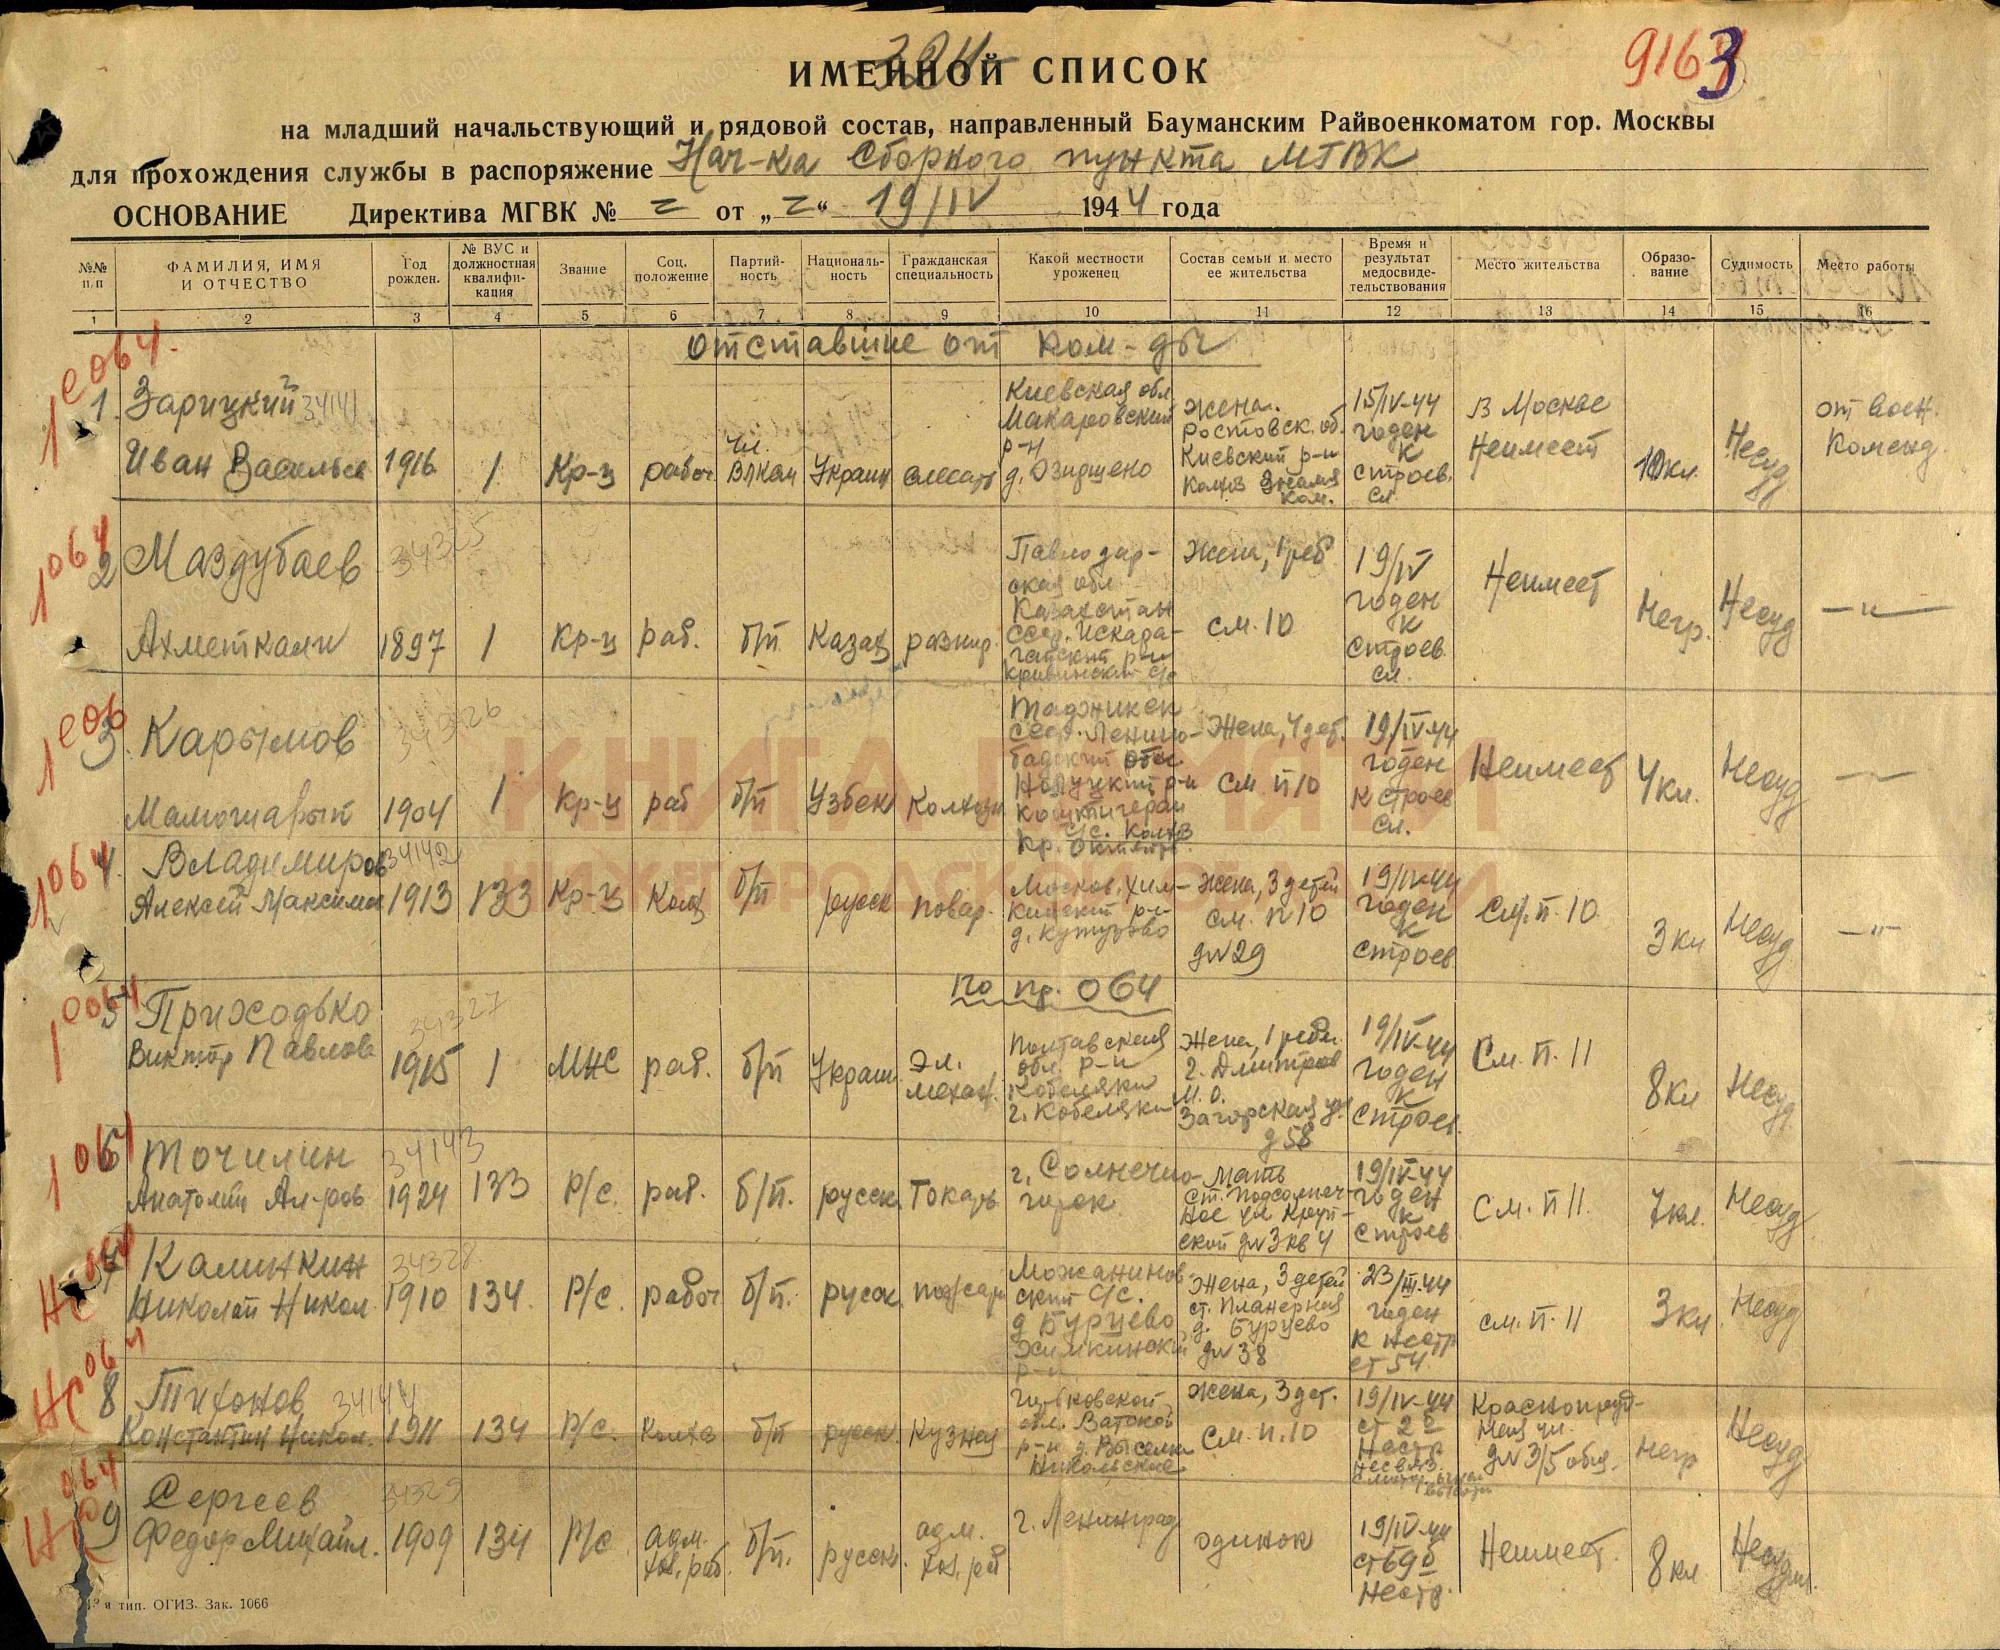 ИМЕННОЙ СПИСОК
9163
на младший начальствующий и рядовой состав, направленный Бауманским Райвоенкоматом гор. Москвы
для прохождения службы в распоряжение Нач-ка Сборного пункта МГВК
ОСНОВАНИЕ Директива МГВК № от „ “ 19/IV 1944 года
№№ п/п
ФАМИЛИЯ, ИМЯ И ОТЧЕСТВО
Год рожден.
№ ВУС и должностная квалифи-кация
Звание
Соц. положение
Партий-ность
Националь-ность
Гражданская специальность
Какой местности уроженец
Состав семьи и место ее жительства
Время и результат медосвиде-тельствования
Место жительства
Образо-вание
Судимость
Место работы
1 2 3 4 5 6 7 8 9 10 11 12 13 14 15 16
отставшие от ком-ды
1. Зарицкий 34141
Иван Васильев 1916 1 Кр-ц рабоч. чл. ВЛКСМ Украин слесарь
Киевская обл. Макаровский р-н
Жена. Ростовск. об. Киевский р-н
15/IV-44 годен к строев. сл.
в Москве Неимеет 10кл. Несуд
от Воен. Команд.
2 Маздубаев 34325
Ахметкали 1897 1 Кр-ц раб. б/п Казах разнор.
Павлодар-ская обл. Казахстан ССР.
Жена, 1 реб см. 10
19/IV годен к строев. сл.
Неимеет Негр. Несуд —"—
3. Карымов 34326
1904 1 Кр-ц раб б/п Узбек Колхозн
Таджикск ССР. Ленино-бадский
Жена, 4 дет. См. п 10
19/IV-44 годен к строев сл.
Неимеет 4кл. Несуд
4. Владимиров 34142
Алексей Максимов 1913 133 Кр-ц Колх б/п русск повар.
Москов. Хим-кинский р-н д. Кутузово
Жена, 3 детей см. п 10 д№29
19/IV-44 годен к строев
См. п. 10. 3 кл Несуд —"—
по пр. 064
5 Приходько 34327
Виктор Павлов 1915 1 МНС раб. б/п Украин. Эл. механ.
Полтавская обл. р-н Кобеляки г. Кобеляки
Жена, 1 ребен. г. Дмитров М.О. Загорская ул д 58
19/IV-44 годен к строев.
См. п. 11 8кл Несуд
6 Точилин 34143
Анатолий Ал-ров 1924 133 Р/С. раб. б/п. русск. Токарь
г. Солнечно-горск.
Мать ст. Подсолнеч-ное ул Круп-ской д№3 кв 4
19/IV-44 годен к строев
См. п 11. 7кл. Несуд
7 Калинкин 34328
Николай Никол. 1910 134. Р/С. рабоч б/п. русск. пожарн
с/с. д Бурцево Химкинский р-н
Жена, 3 детей ст. Планерная д. Бурцево д№38
23/III-44 годен к нестр ст 54.
см. п. 11 3кл. Несуд
8 Тихонов 34144
Константин Никол. 1911 134 Р/С. Колхоз б/п русск. Кузнец
обл. р-н д. Выселки Никольские
Жена, 3 дет. См. п. 10
19/IV-44 ст 2 б Нестр
Краснопруд-ная ул. д№3/5 общ. негр Несуд
9 Сергеев 34329
Федор Михайл. 1909 134 Р/С Адм. хоз. раб. б/п. русск. адм. хоз. раб
г. Ленинград одинок
19/IV-44 ст 69 б Нестр.
Неимеет. 8кл Несудим.
я тип. ОГИЗ. Зак. 1066
КНИГА ПАМЯТИ
НИЖЕГОРОДСКОЙ ОБЛАСТИ